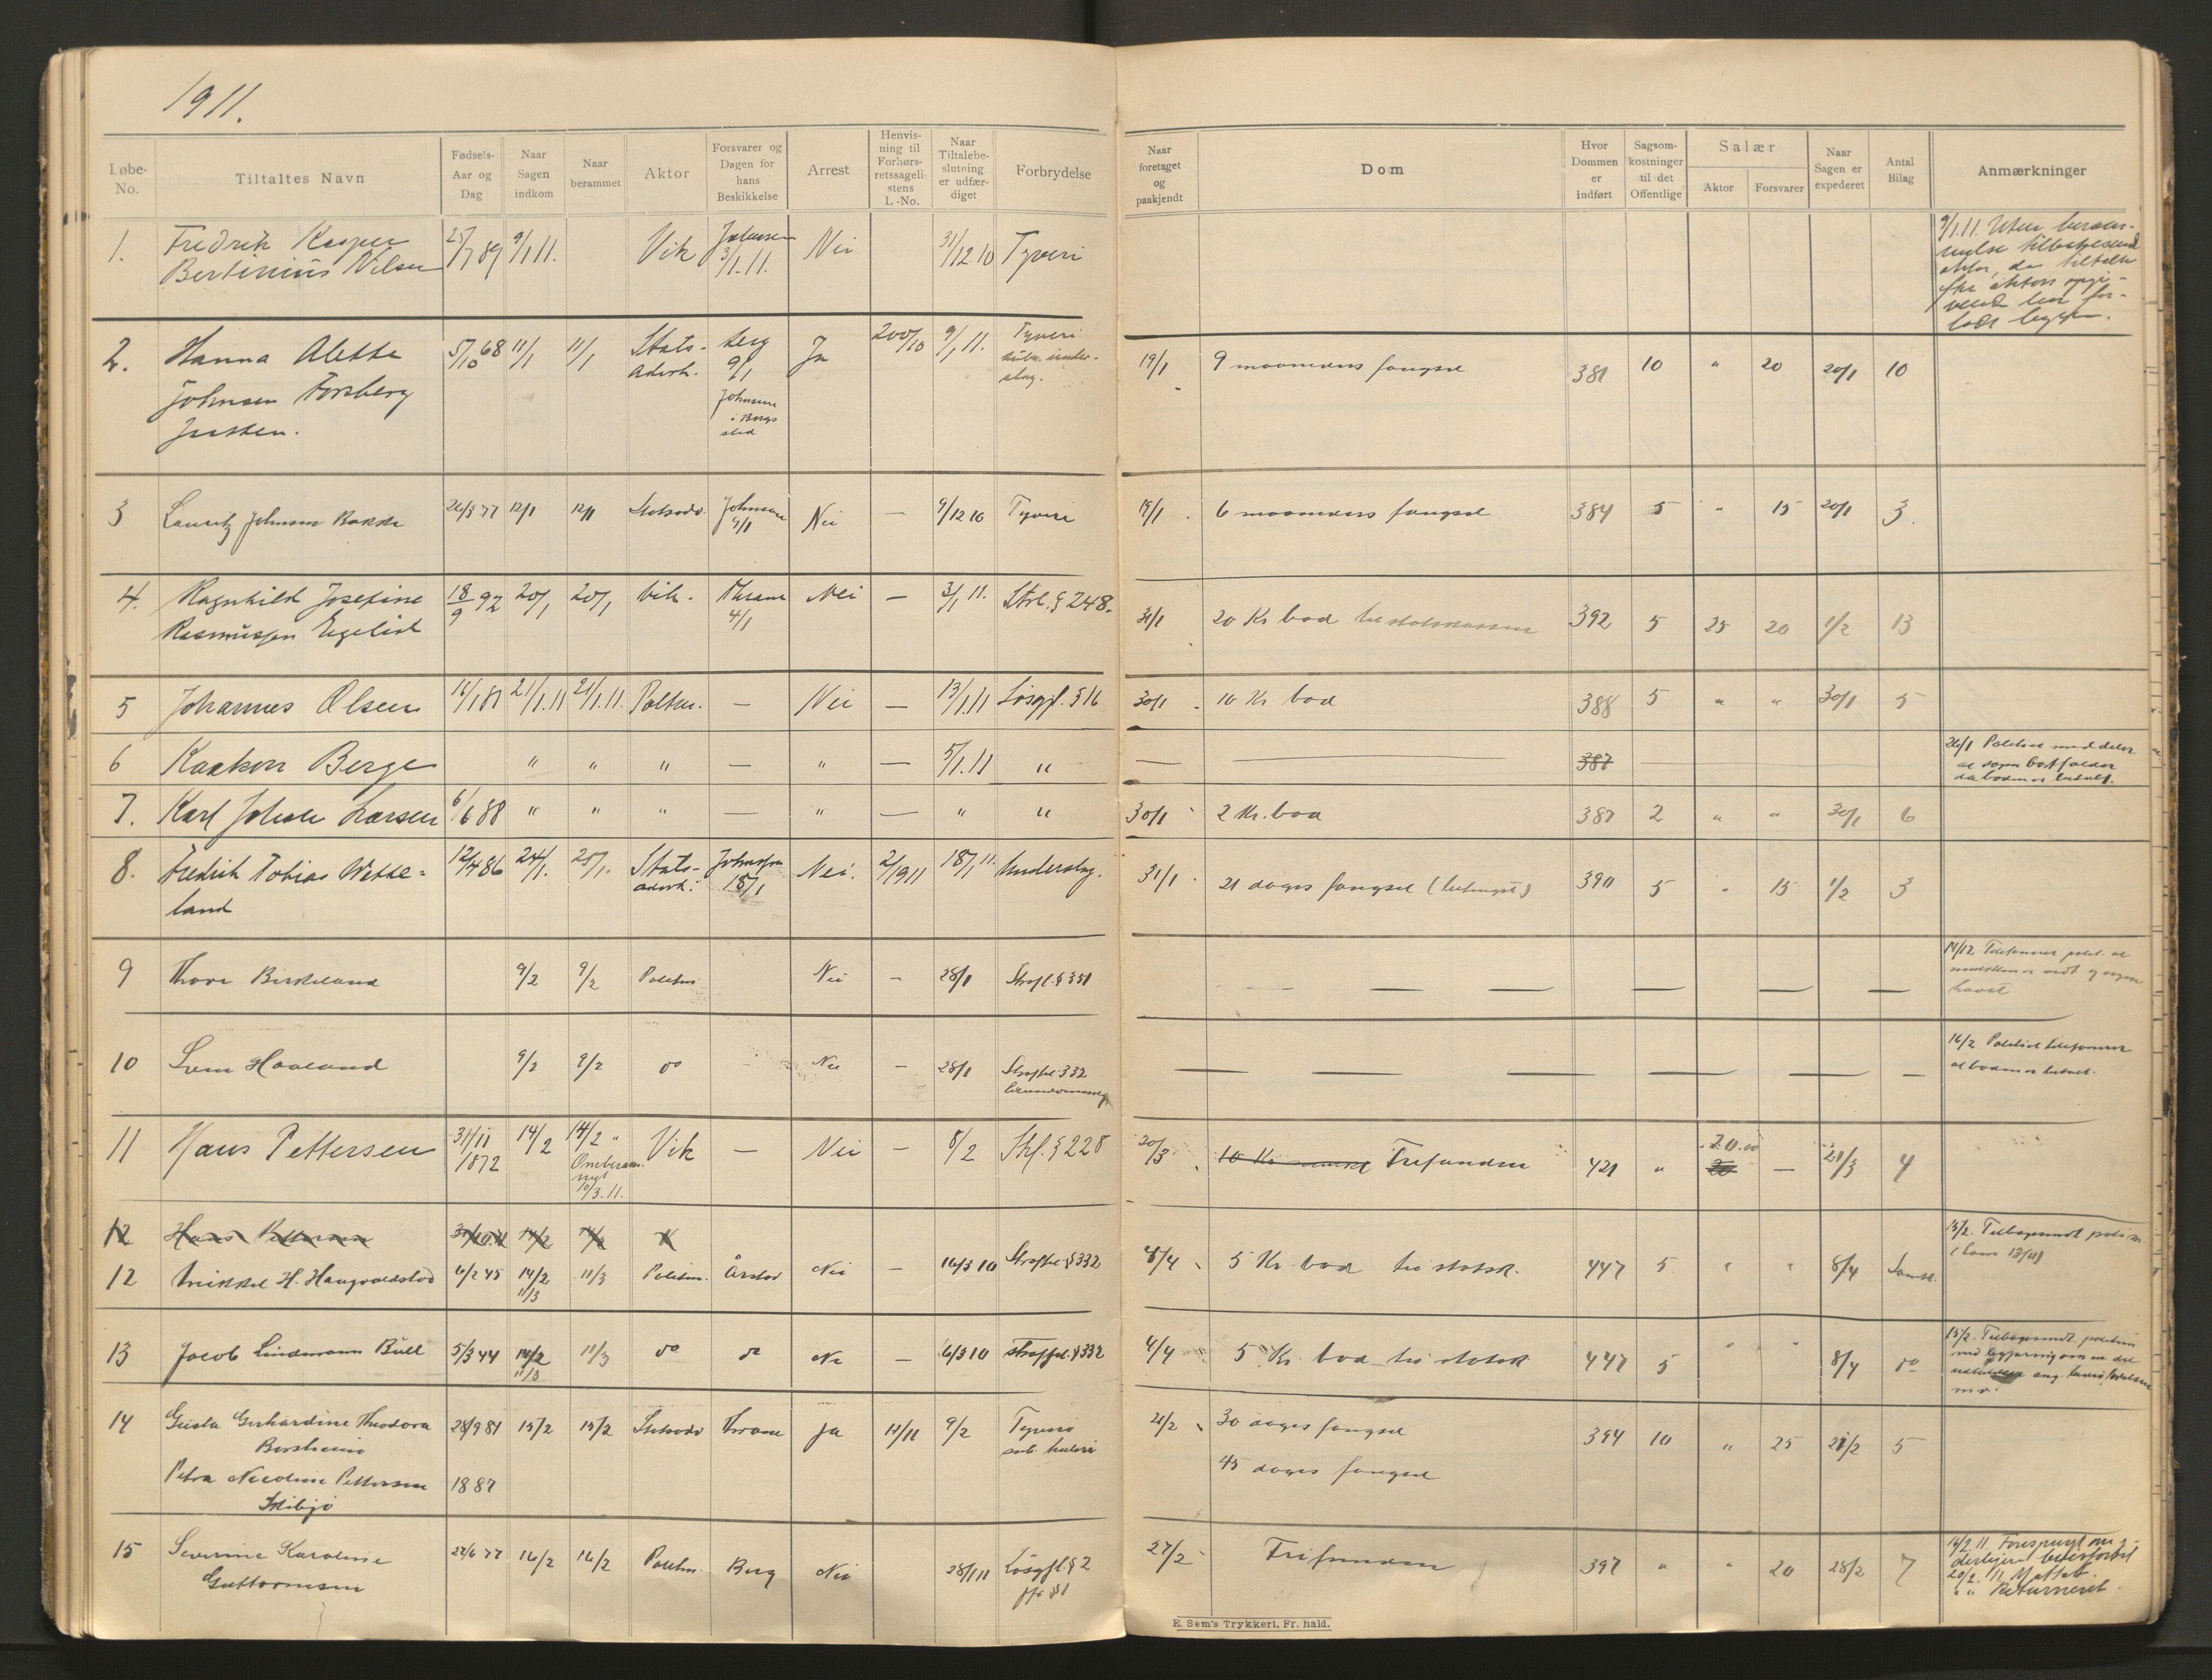 1911.
Løbe-No.
Tiltaltes Navn
Fødsels-Aar og Dag
Naar Sagen indkom
Naar berammet
Aktor
Forsvarer og Dagen for hans Beskikkelse
Arrest
Henvisning til Forhørsretssagelistens L.-No.
Naar Tiltalebeslutning er udfærdiget
Forbrydelse
Naar foretaget og paakjendt
Dom
Hvor Dommen er indført
Sagsomkostninger til det Offentlige
Salær
Aktor
Forsvarer
Naar Sagen er expederet
Antal Bilag
Anmærkninger
1. Fredrik Kasper 25/7 89 9/1 11. Vik Johnsen 3/1.11. Nei 31/12.10 Tyveri 9/1.11. Uten
Bertinius Nilsen
2. Hanna Alette 5/10 68 11/1 11/1 Stats- Berg 9/1 Ja 200/10 9/1 11. Tyveri 19/1 9 maaneders fængsel 381 10 " 20 20/1 10
Johnsen Forsberg advok. Johnsen i Bergs sted
Jensen.
3 Lauritz Johnsen Bakke 26/3 77 12/1 12/1 Statsadv. Johnsen 9/1 Nei — 9/12 10 Tyveri 19/1 6 maaneders fængsel 384 5 " 15 20/1 3.
4. Ragnhild Josefine 18/9 92 20/1 20/1 Vik. Thrane 4/1 Nei — 3/1 11. Strl. § 248. 31/1 20 Kr bod til statskassen 392 5 25 20 1/2 13
Rasmussen Egelid
5 Johannes Olsen 16/1 81 21/1.11 21/1.11. Politm. — Nei — 13/1.11 Løsgjl. § 16 30/1 10 Kr bod 388 5 " " 30/1 5
6 Haakon Berge " " " — " — 5/1.11 " — — 387 26/1 Politiet meddeler
at sagen bortfalder
da boden er betalt.
7. Karl Johan Larsen 6/6 88 " " " — " — " " 30/1 2 Kr. bod 387 2 " " 30/1 6
8. Fredrik Tobias Wette- 12/4 86 24/1. 25/1. Stats- Johnsen 18/1 Nei. 2/1911 18/1 11. Underslag. 31/1 21 dages fængsel (betinget) 390 5 " 15 1/2 3
land advok.
9 Thore Birkeland 9/2 9/2 Politm Nei — 28/1 Strafl. § 351
10 Sven Haaland 9/2 9/2 do — Nei — 28/1 Straffel 332 16/2 Politiet telefonerer
at boden er betalt.
11 Hans Pettersen 31/11 1872 14/2 14/2 Omberam. 10/3.11. Vik — Nei — 8/2 Stfl. § 228 20/3 10 Kr Frifunden 421 " 20.00 20 — 21/3 4
12 Hans Pettersen 14/2 14/2 V 15/2. Tilbagesendt politm.
12 Mikkel H. Haugvaldstad 6/2 45 14/2 11/3 11/3 Politm. Årstad Nei — 16/3 10 Straffel § 332 4/4 5 Kr. bod til statsk. 447 5 " " 8/4
13 Jacob Lindemann Bull 5/3 44 14/2 11/3 11/3 do do Nei — 16/3 10 Straffel. § 332 4/4 5 Kr. bod til statsk 447 5 " " 8/4 do 15/2. Tilbagesendt politm
14 Gusta Gerhardine Theodora 28/9 81 15/2 15/2 Statsadv Thrane Ja 11/11 9/2 Tyveri 21/2 30 dages fængsel 394 10 " 25 21/2 5
Borsheim sub. hæleri
Petra Nicoline Pettersen 1887 45 dages fængsel
15 Severine Karoline 22/6 77 16/2 16/2 Politm. Berg Nei 28/1 11 Løsgjl. § 2 27/2 Frifunden 397 " " 20 28/2 7 16/2 11. Forespurgt om
Guttormsen jfr § 1 20/2. 11. Mottatt.
" " Returneret.
E. Sem's Trykkeri, Fr. hald.